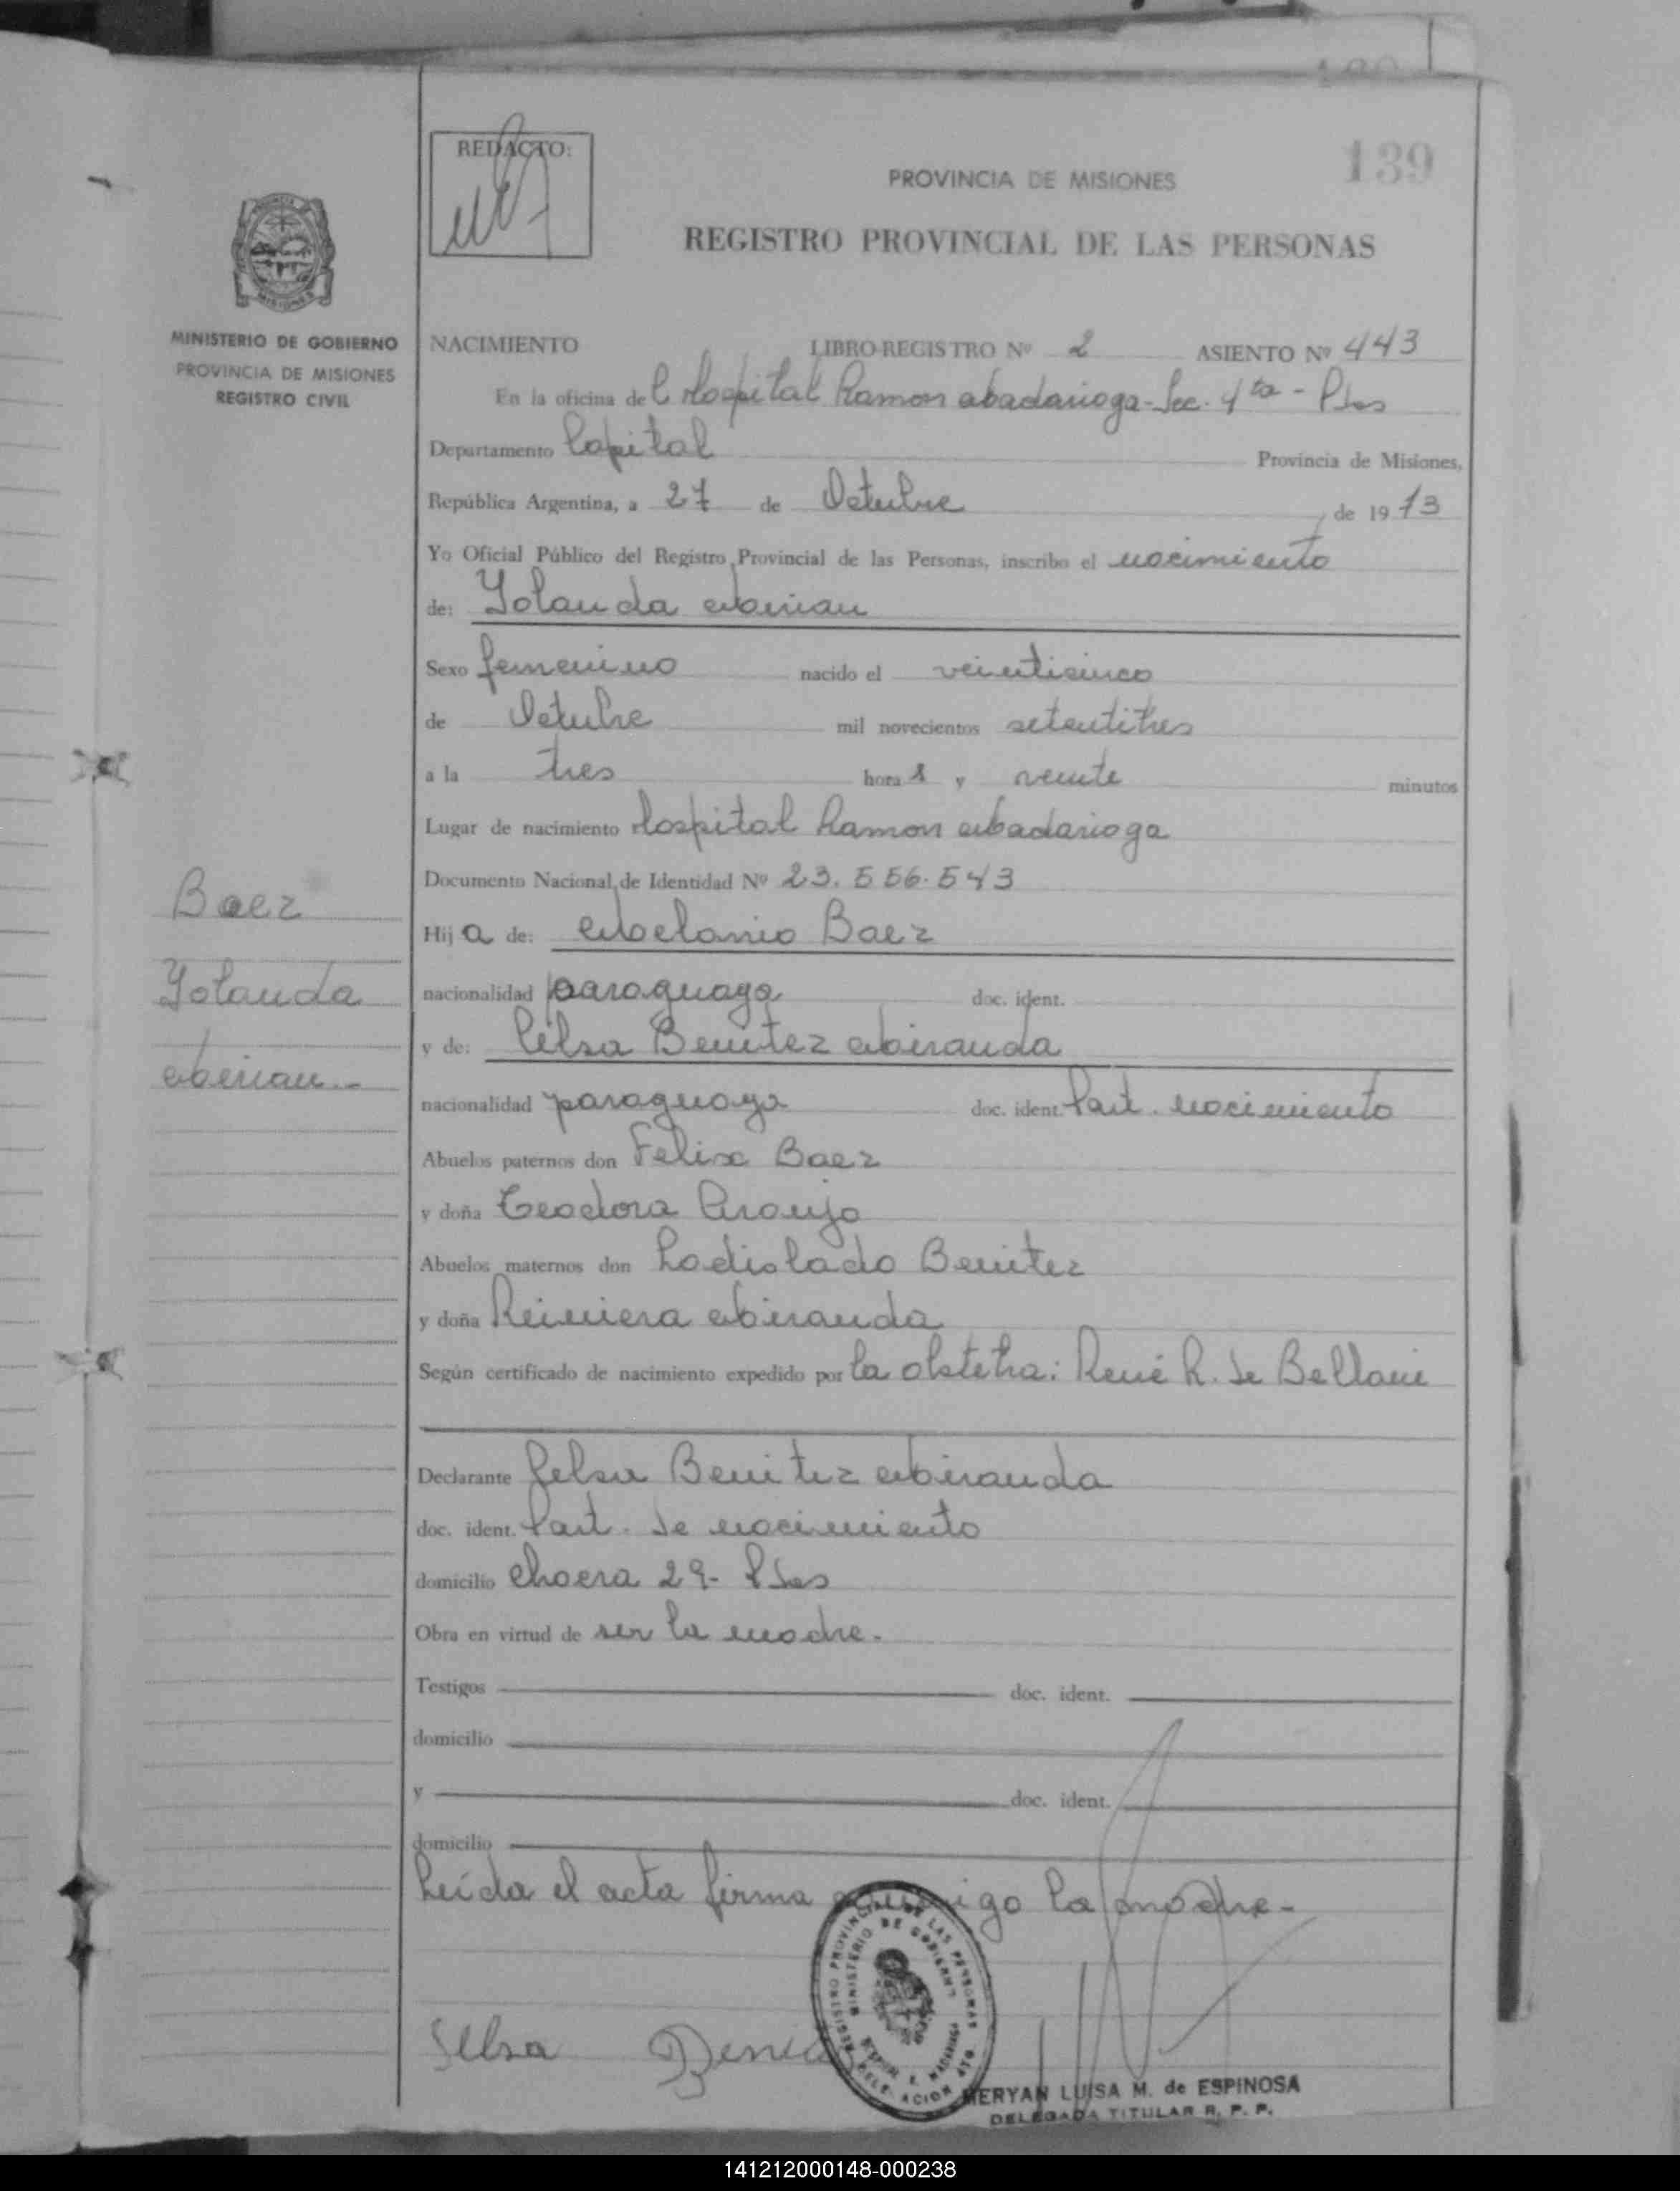 139
REDACTO:
PROVINCIA DE MISIONES
REGISTRO PROVINCIAL DE LAS PERSONAS
MINISTERIO DE GOBIERNO
PROVINCIA DE MISIONES
REGISTRO CIVIL
NACIMIENTO LIBRO-REGISTRO Nº 2 ASIENTO Nº 443
En la oficina del Hospital Ramon Madariaga - Sec. 4ta - Pdas
Departamento Capital Provincia de Misiones,
República Argentina, a 27 de Octubre de 1973
Yo Oficial Público del Registro Provincial de las Personas, inscribo el nacimiento
de: Yolanda Mirian
Sexo femenino nacido el veinticinco
de Octubre mil novecientos setentitres
a la tres hora s y veinte minutos
Lugar de nacimiento Hospital Ramon Madariaga
Documento Nacional de Identidad Nº 23.556.543
Hij a de: Melanio Baez
nacionalidad paraguaya doc. ident.
y de: Celsa Benitez Miranda
nacionalidad paraguaya doc. ident. Part. nacimiento
Abuelos paternos don Felix Baez
y doña Teodora Araujo
Abuelos maternos don Ladislado Benitez
y doña Miranda
Según certificado de nacimiento expedido por la obstetra: René R. de
Declarante Celsa Benitez Miranda
doc. ident. Part. de nacimiento
domicilio Chacra 29 - Pdas
Obra en virtud de ser la madre.
Testigos doc. ident.
domicilio
y doc. ident.
domicilio
Leída el acta firma conmigo la madre.-
Baez
Yolanda
Mirian.-
REGISTRO PROVINCIAL DE LAS PERSONAS
MINISTERIO DE GOBIERNO
MERYAN LUISA M. de ESPINOSA
DELEGADA TITULAR R. P. P.
141212000148-000238